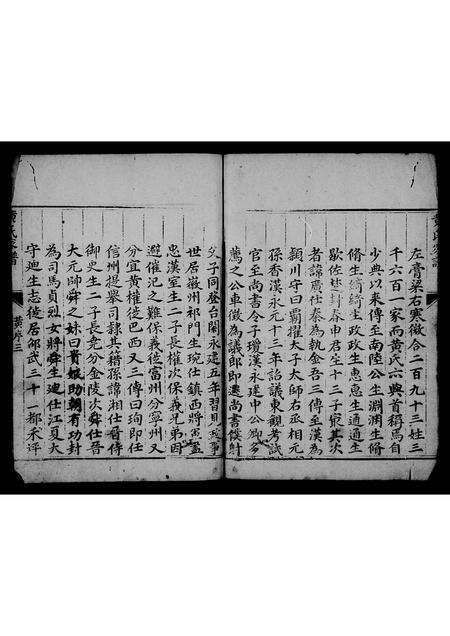 左膏粱右寒微合二百九十三姓三
千六百一家而黄氏六與首稱焉自
少典以來傳至南陸公生淵淵生脩
脩生綺綺生政政生惠惠生通通生
歇佐楚封春申君生十三子㝡其次
者諱廣仕秦為執金吾三傳至漢為
潁川守曰覇擢太子太師右丞相元
孫香漢永元十三年詣議東觀考試
官至尚書令子瓊漢永建中公卿
薦之公車徵為議郎即遷尚書僕射
父子同登台閣永建五年習見
世居徽州祁門生琬仕鎮西將軍
忠漢室生二子長權次保義兄弟因
避催汜之難保義徙富州分寧州又
分宜黄權徙巴西又三傳曰珣即任
信州提舉司隸其籍孫諱湘仕晉侍
御史生二子長竞分金陵次舜仕晋
大元帥舜之妹曰貴娘助朝有功封
為司馬貞烈女將舜生連仕江夏大
守迪生志後居邵武三十 都禾坪
黄序三